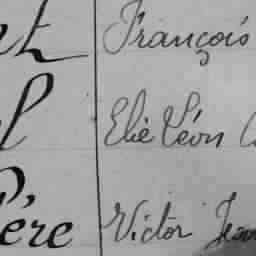 et François
Elie Léon
ère Victor Jean